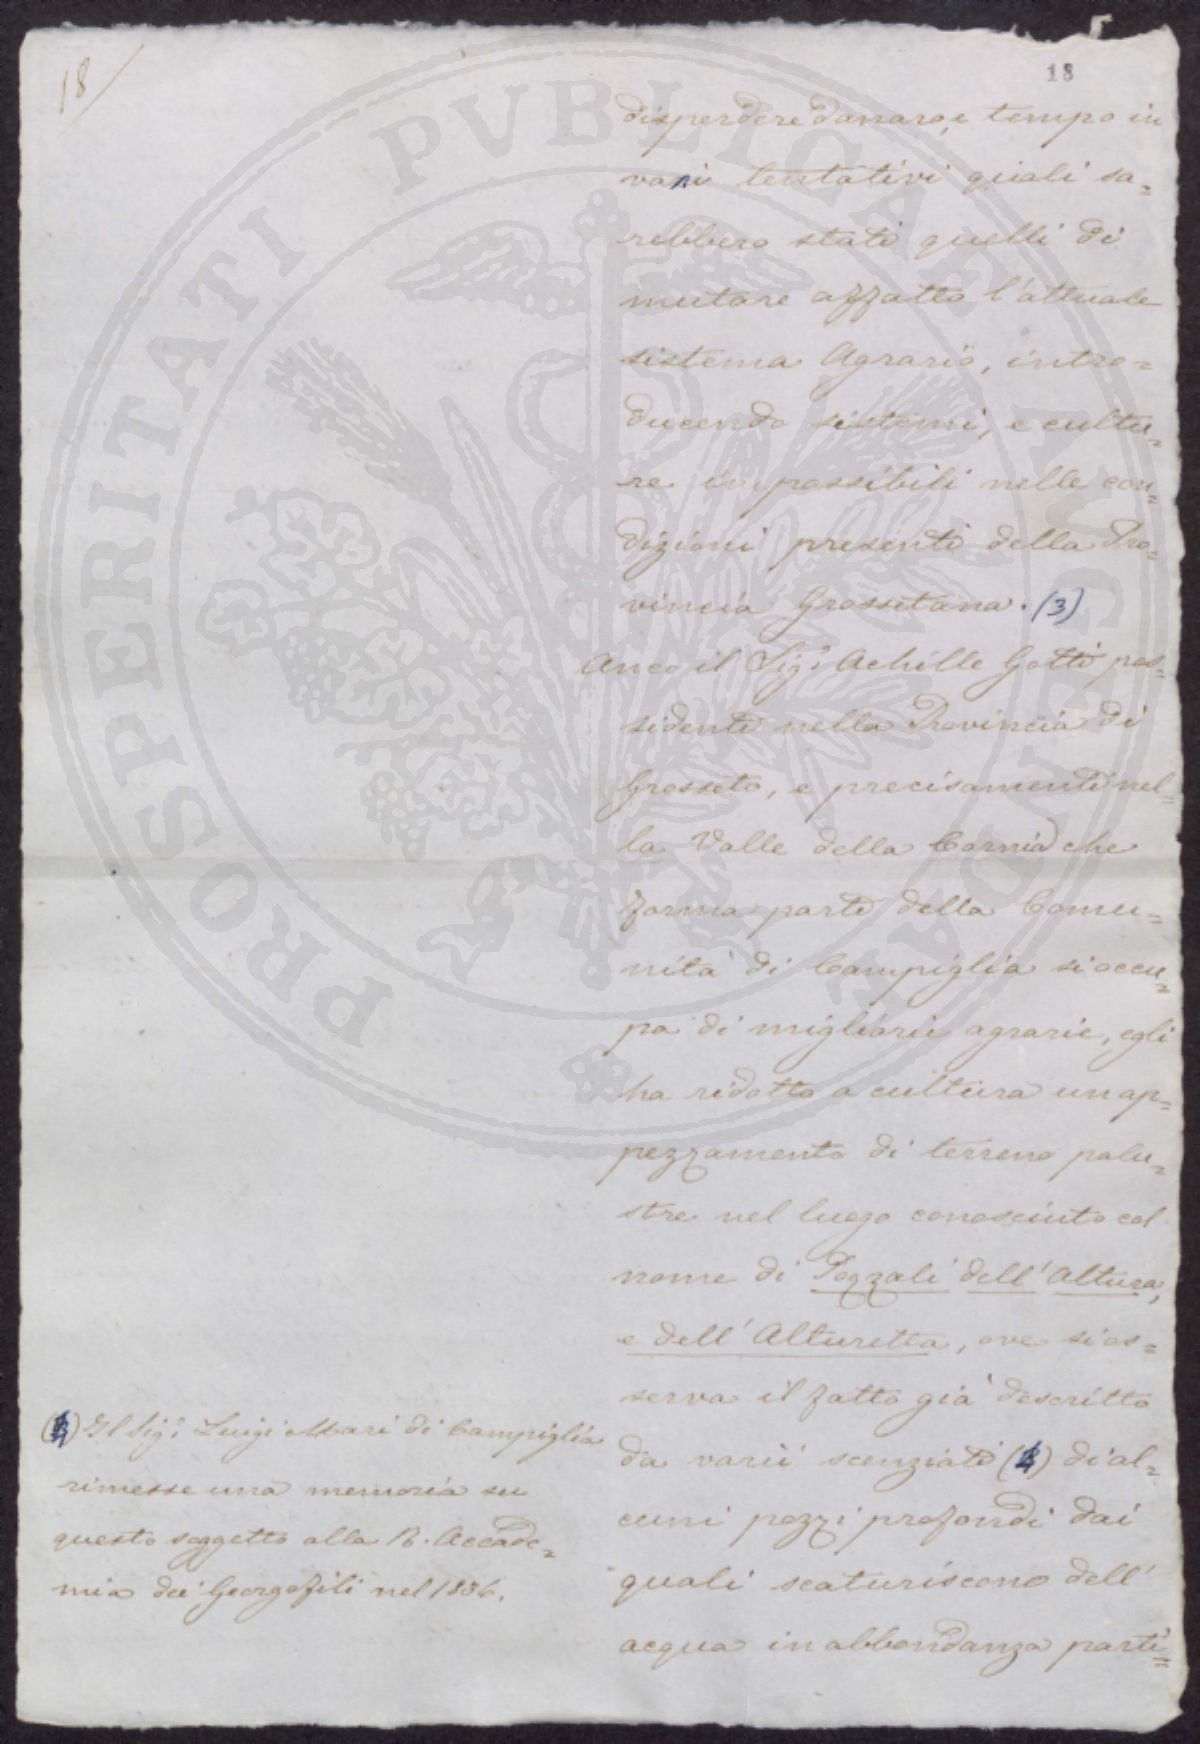 18
18
disperdere danaro, e tempo in
vani tentativi quali sa=
rebbero stati quelli di
mutare affatto l'attuale
sistema Agrario, intro=
ducendo sistemi, e cultu=
re impossibili nelle con=
dizioni presenti della Pro=
vincia Grossetana. (3)
Anco il Sig.r Achille Gotti pos=
sidente nella Provincia di
Grosseto, e precisamente nel=
la Valle della Cornia che
forma parte della Comu=
nità di Campiglia si occu=
pa di migliorie agrarie, egli
ha ridotto a cultura un ap=
pezzamento di terreno palu=
stre nel luogo conosciuto col
nome di Pozzali dell'Altura,
e dell'Alturetta, ove si os=
serva il fatto già descritto
da varii scenziati (4) di al=
cuni pozzi profondi dai
quali scaturiscono dell'
acqua in abbondanza parti=
(4) Il Sig.r Luigi Mari di Campiglia
rimesse una memoria su
questo soggetto alla R. Accade=
mia dei Georgofili nel 1836.
PROSPERITATI PVBLICAE AVGENDAE